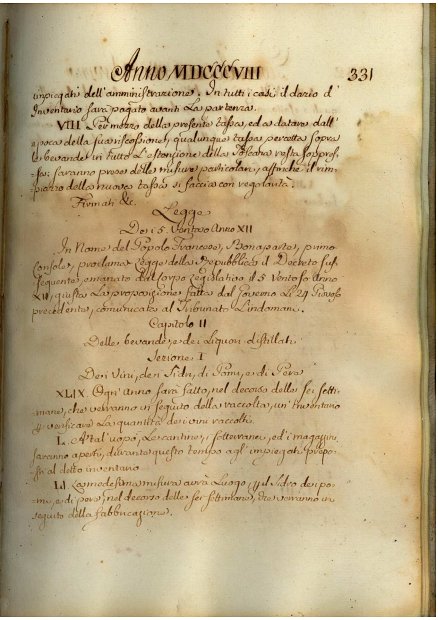 Anno MDCCCVIII 331
impiegati dell'amministrazione. In tutti i casi il dazio d'
Inventario sarà pagato avanti la partenza.
VIII. Per mezzo della presente tassa, ed a datare dall'
epoca della sua riscossione, qualunque tassa percetta sopra
le bevande in tutta l'estensione della Toscana resta soppres-
sa: saranno prese delle misure particolari, affinchè il rim-
piazzo della nuova tassa si faccia con regolarità.
Firmati &c.
Legge
Dei 5. Ventoso Anno XII
In Nome del Popolo Francese, Bonaparte, primo
Console, proclama Legge della Repubblica il Decreto sus-
seguente, emanato dal Corpo Legislativo il 5 Ventoso Anno
XII, giusta la proposizione fatta dal Governo li 24 Piovoso
precedente, comunicata al Tribunato Lindomani.
Capitolo II
Delle bevande, e dei Liquori distillati
Sezione I
Dei Vini, dei Sidri, di Pomi, e di Pera
XLIX. Ogn'Anno sarà fatto, nel decorso delle sei setti-
mane, che verranno in seguito della raccolta, un'inventario
p verificare la quantità dei vini raccolti.
L. A tal'uopo, le cantine, i sotterranei, ed i magazzini
saranno aperti, durante questo tempo agl'impiegati prepo-
sti al detto inventario
LI. La medesima misura avrà luogo p il Sidro dei po-
mi, e di pera, nel decorso delle sei settimane, che verranno in
seguito della fabbricazione.